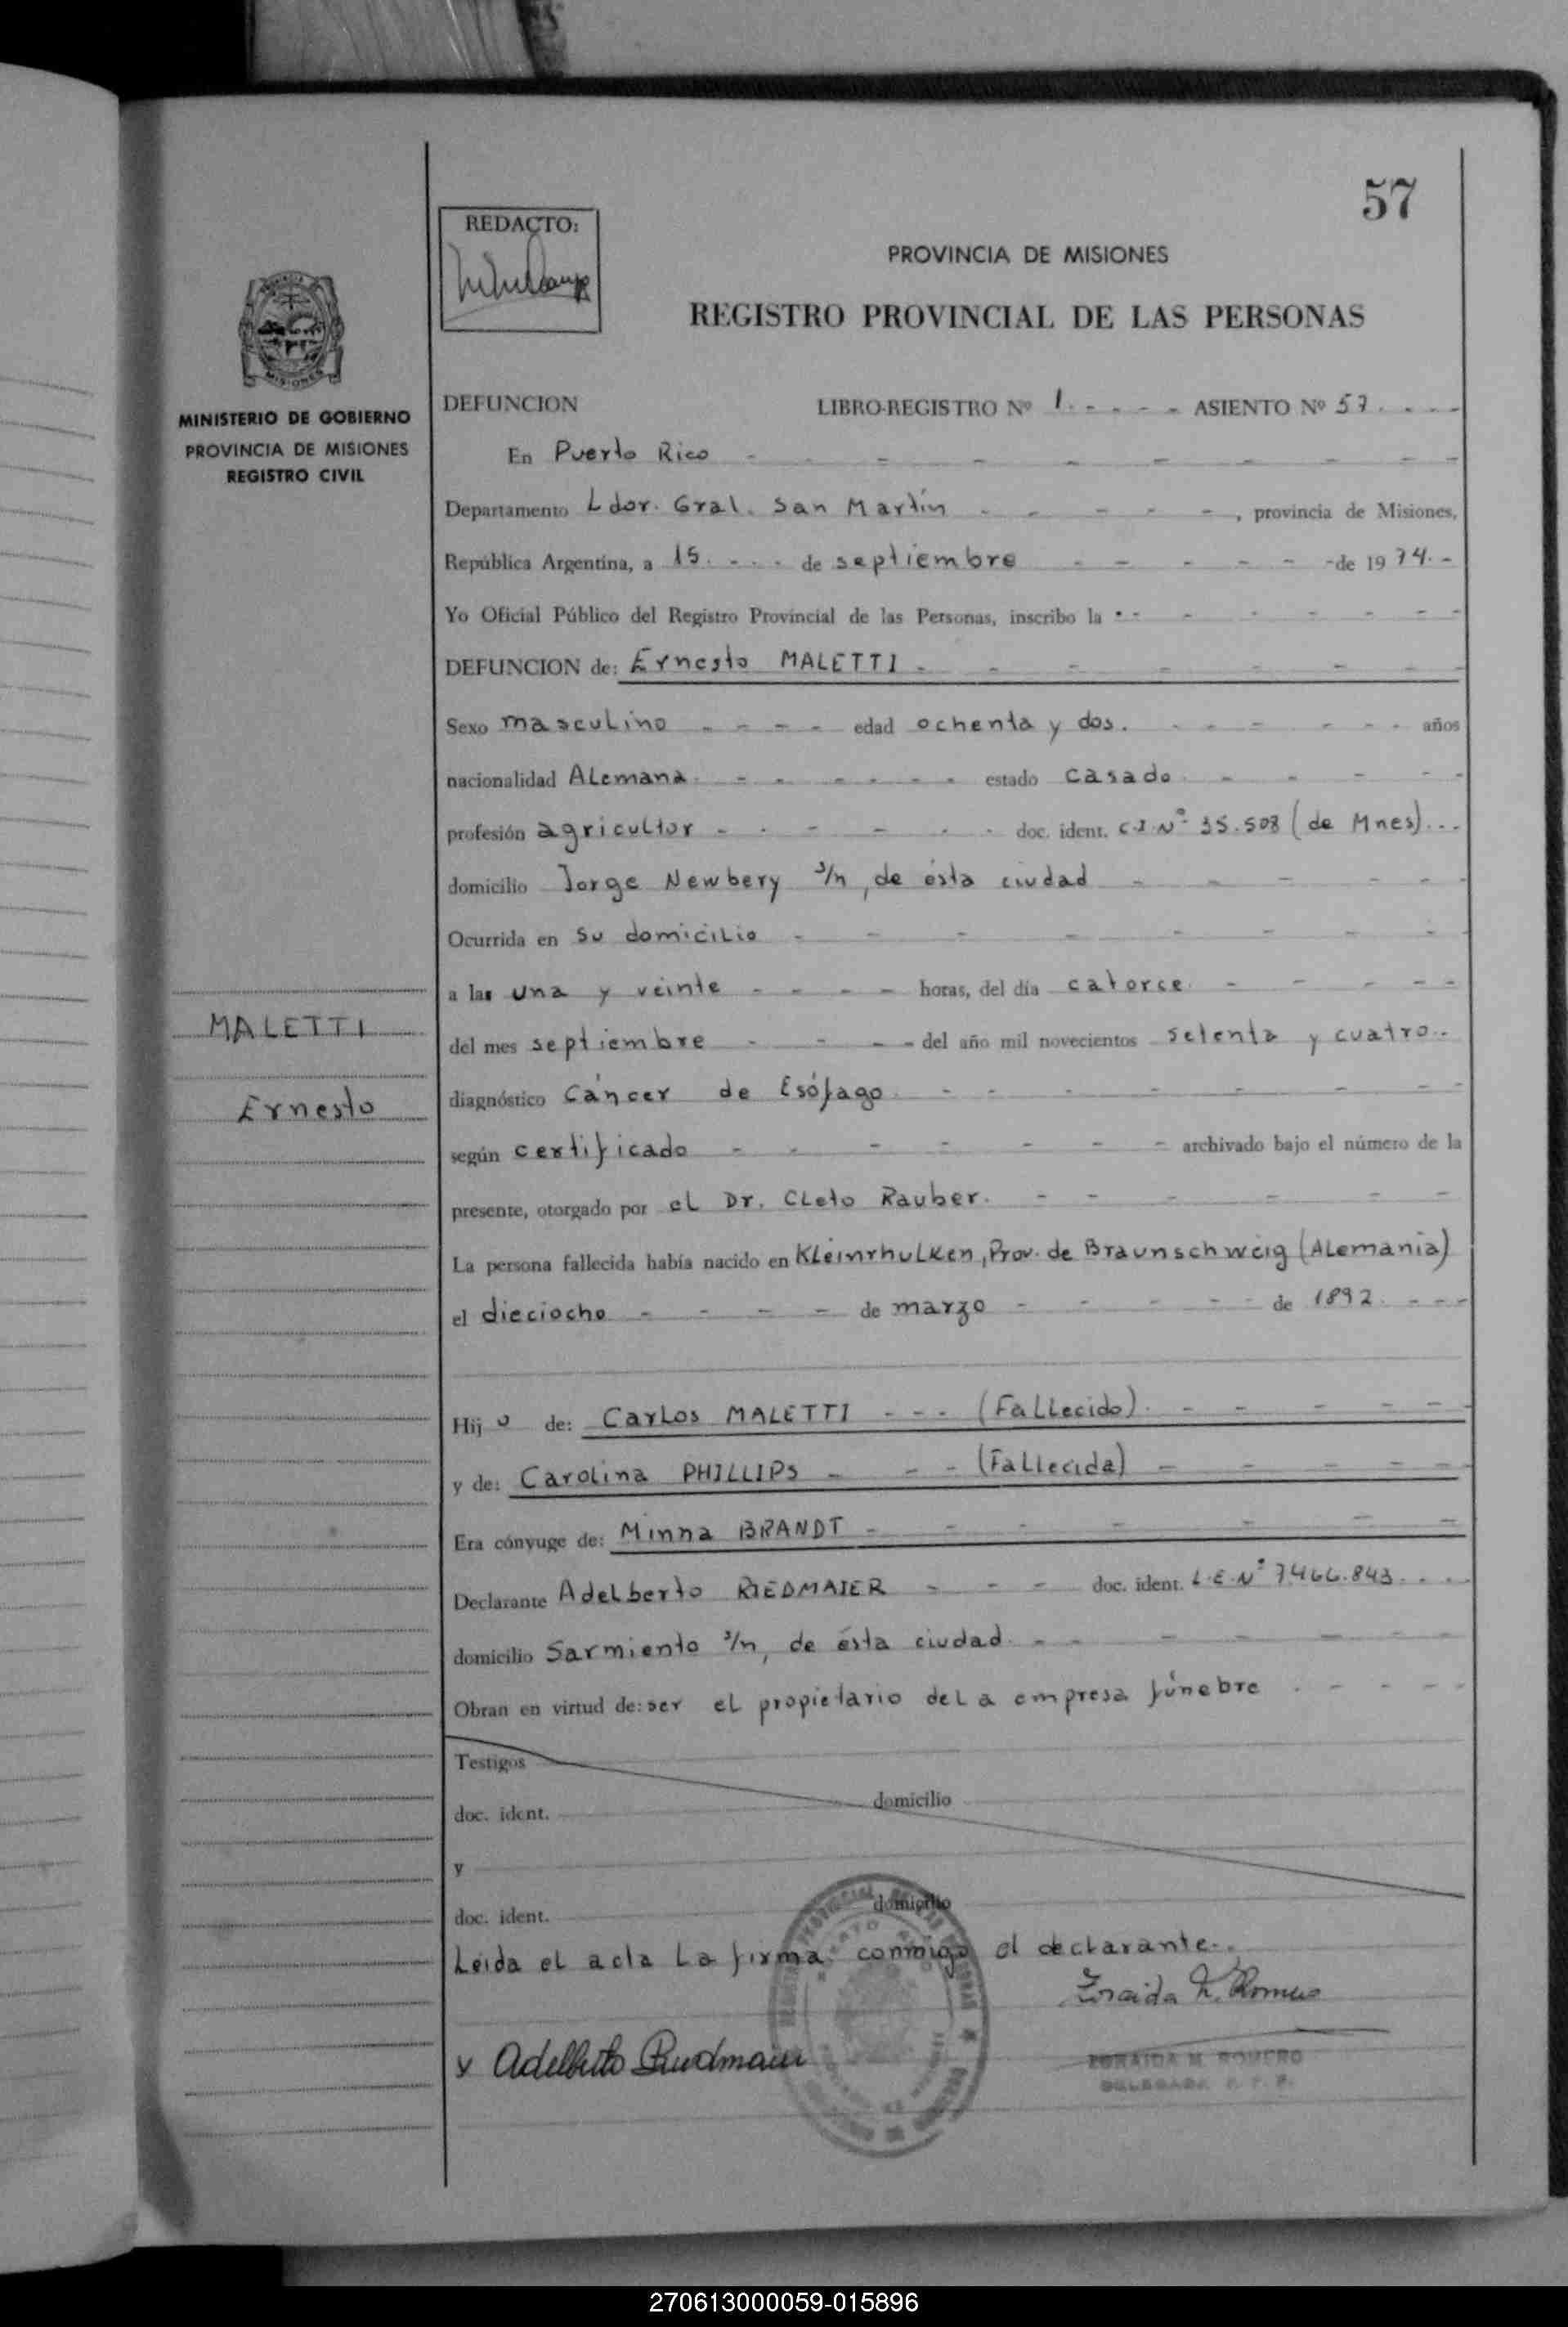 57
REDACTO:
PROVINCIA DE MISIONES
REGISTRO PROVINCIAL DE LAS PERSONAS
MINISTERIO DE GOBIERNO
PROVINCIA DE MISIONES
REGISTRO CIVIL
DEFUNCION LIBRO-REGISTRO Nº 1 - - - - - ASIENTO Nº 57 - - - -
En Puerto Rico - - - - - - - - -
Departamento Ldor. Gral. San Martín - - - - - , provincia de Misiones,
República Argentina, a 15. - - - de septiembre - - - - - - de 1974. -
Yo Oficial Público del Registro Provincial de las Personas, inscribo la - - - - - - - -
DEFUNCION de: Ernesto MALETTI - - - - - - -
Sexo masculino - - - - edad ochenta y dos. - - - - - - - años
nacionalidad Alemana - - - - - - - estado casado - - - - -
profesión agricultor - - - - - - doc. ident. C.I.Nº 35.508 (de Mnes)...
domicilio Jorge Newbery s/n, de ésta ciudad - - - - - -
Ocurrida en su domicilio - - - - - - - -
a las una y veinte - - - - horas, del día catorce - - - - -
del mes septiembre - - - - del año mil novecientos setenta y cuatro.-
diagnóstico Cáncer de Esófago - - - - - - -
según certificado - - - - - - - archivado bajo el número de la
presente, otorgado por el Dr. Cleto Rauber. - - - - - -
La persona fallecida había nacido en Kleinrhulken, Prov. de Braunschweig (Alemania)
el dieciocho - - - - de marzo - - - - - de 1892. - - -
Hijo de: Carlos MALETTI - - - (Fallecido) - - - - -
y de: Carolina PHILLIPS - - - (Fallecida) - - - - -
Era cónyuge de: Minna BRANDT - - - - - - -
Declarante Adelberto RIEDMAIER - - - doc. ident. L.E.Nº 7466.843. - - -
domicilio Sarmiento s/n, de ésta ciudad - - - - - - -
Obran en virtud de: ser el propietario de la empresa fúnebre - - - - -
Testigos
doc. ident. domicilio
y
doc. ident. domicilio
Leída el acta la firma conmigo el declarante.
Zoraida M. Romero
x Adelberto Riedmaier
ZORAIDA M. ROMERO
DELEGADA R. P. P.
MALETTI
Ernesto
270613000059-015896